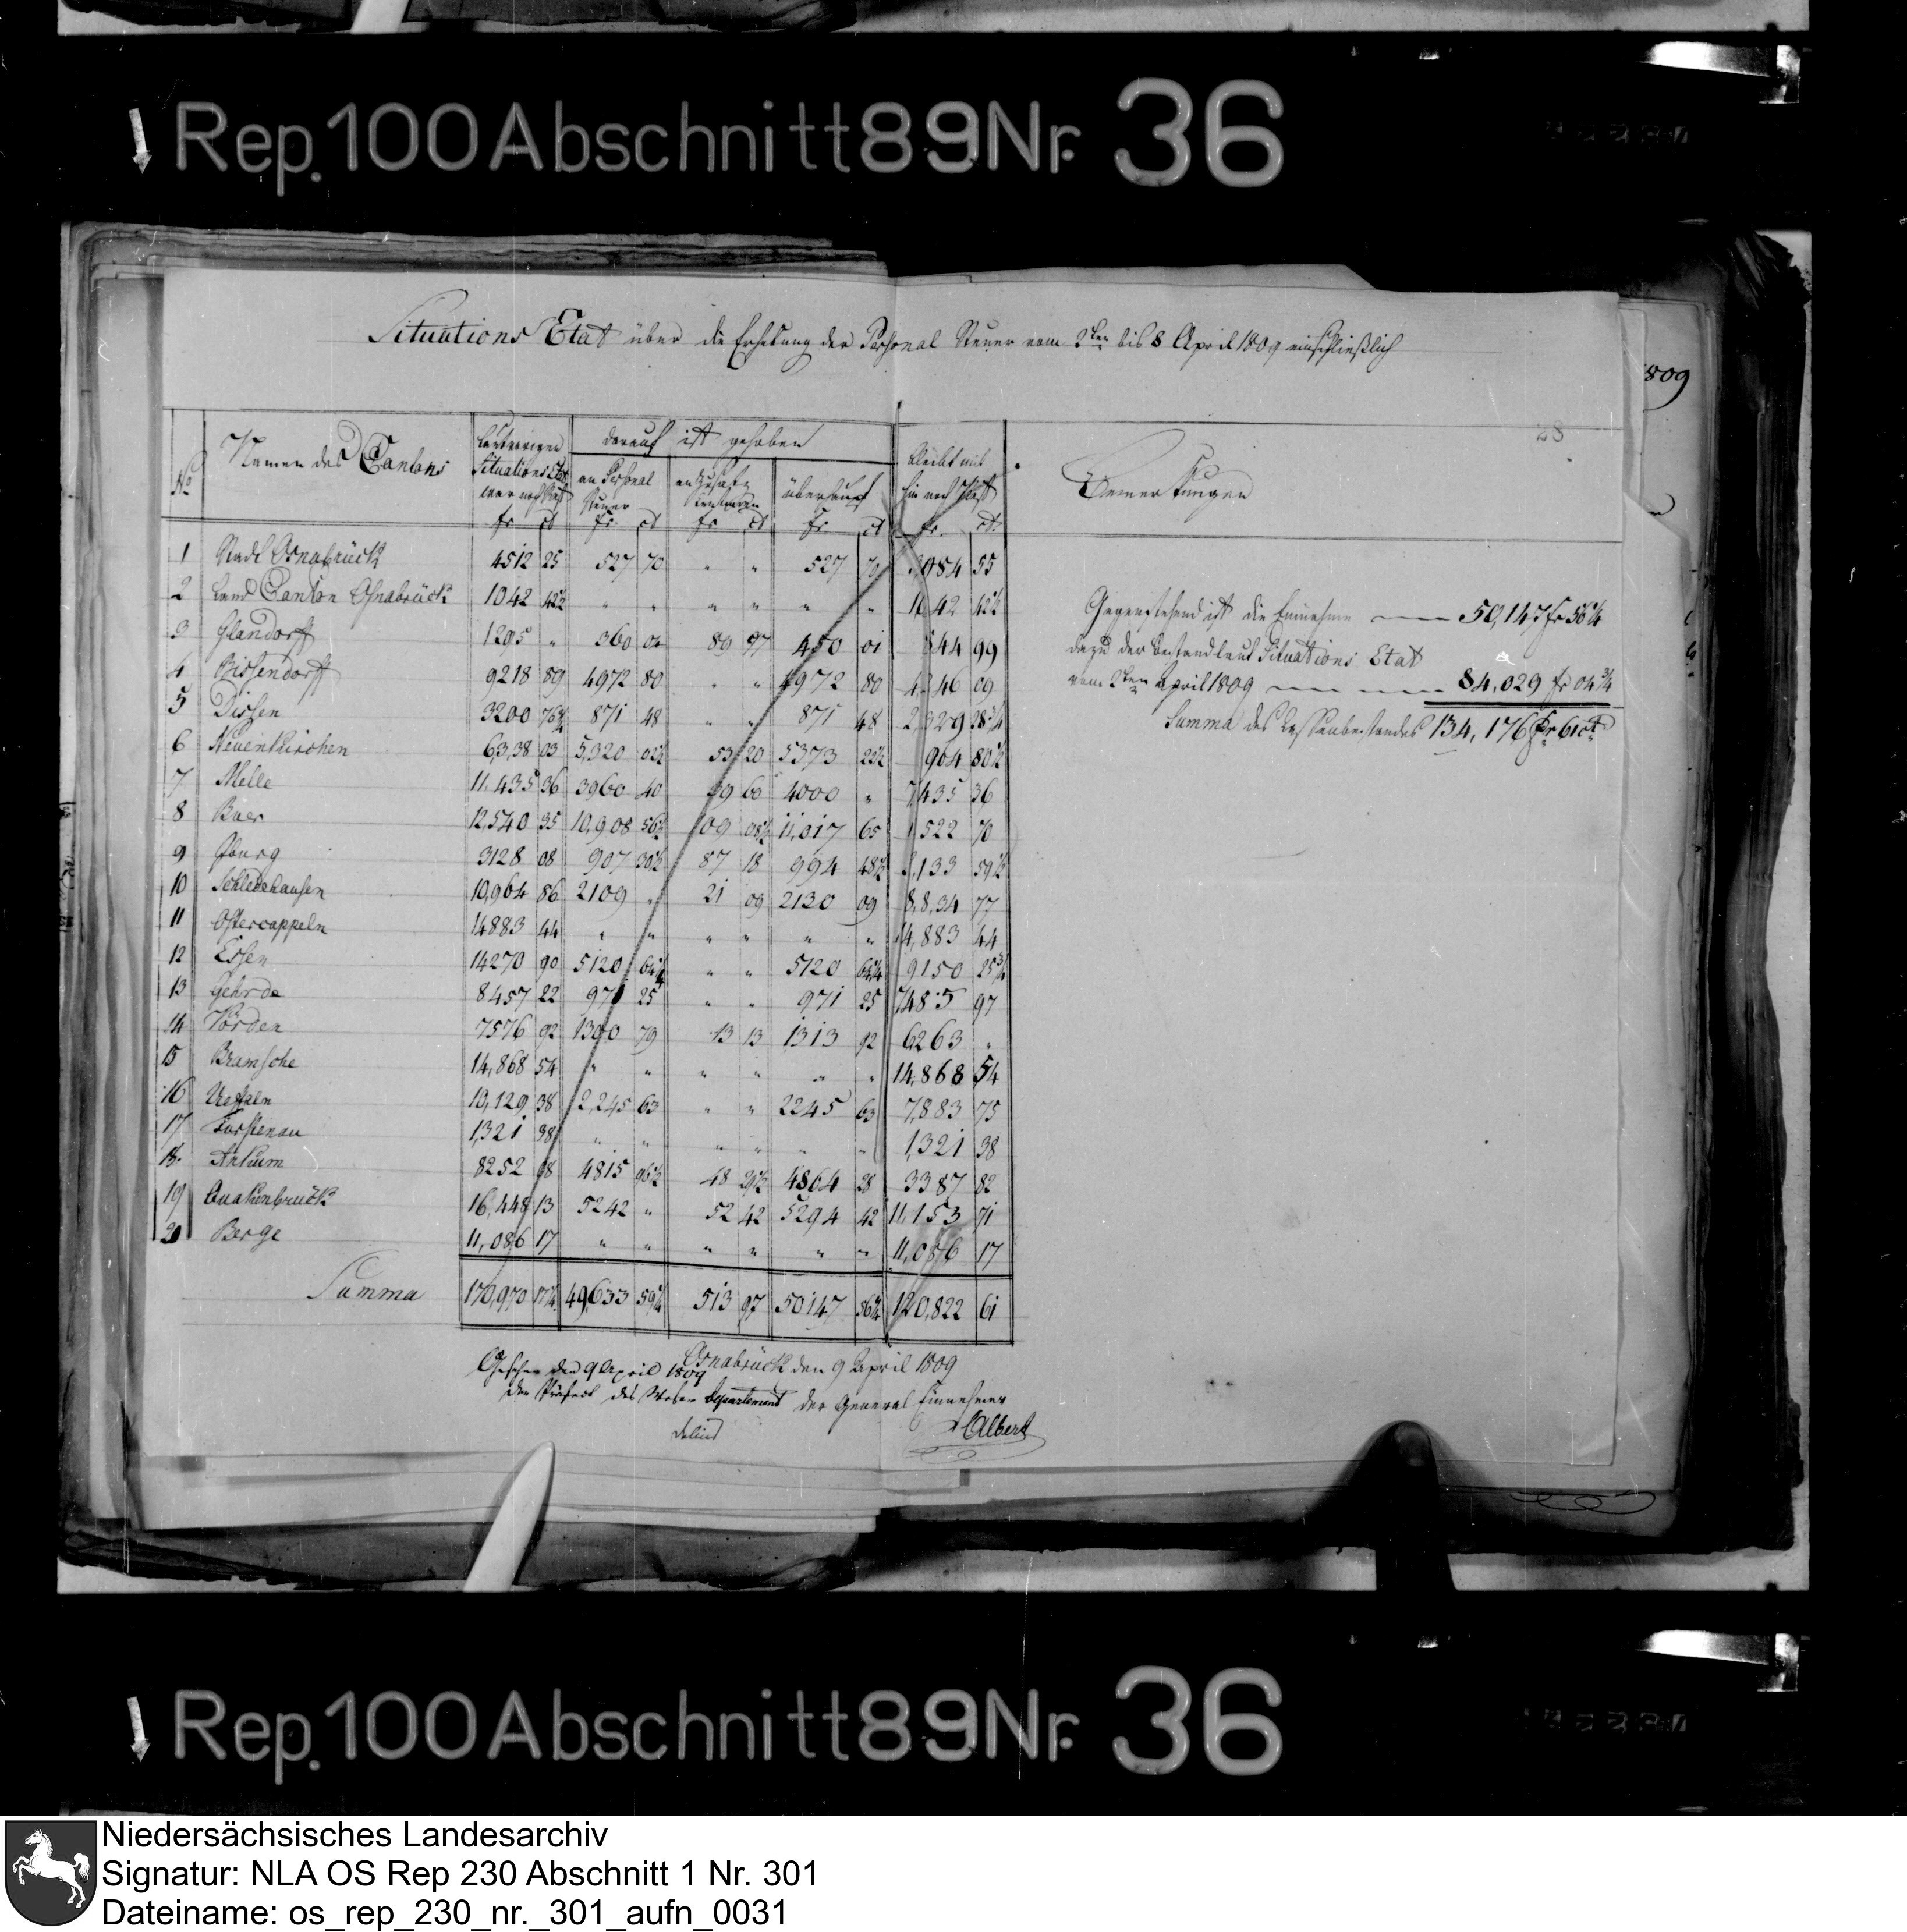 Rep. 100 Abschnitt 89 Nr. 36
Situations Etat über die Erhebung der Personal Steuer vom 2ten bis 8 April 1809 einschließlich
1809
28
No Namen des Cantons Situations Etat war noch Rest darauf ist gehoben bleibt mithin noch Rest Bemerkungen
an Personal Steuer an Zusatz Centimen überhaupt
fr ct fr. ct fr ct fr ct fr. ct.
1 Stadt Osnabrück 4512 25 527 70 " " 527 70 3984 55
2 Land Canton Osnabrück 1042 42½ " " " " " " 1042 42½
3 Glandorff 1295 " 360 04 89 97 450 01 844 99
4 Bissendorff 9218 89 4972 80 " " 4972 80 4246 09
5 Dissen 3200 76¾ 871 48 " " 871 48 2,329 28¾
6 Neuenkirchen 6,338 03 5,320 02½ 53 20 5373 22½ 964 80½
7 Melle 11,435 36 3960 40 39 60 4000 " 7,435 36
8 Buer 12,540 35 10,908 56½ 109 08½ 11,017 65 1,522 70
9 Iburg 3128 08 907 30½ 87 18 994 48½ 2,133 59½
10 Schledehausen 10,964 86 2109 " 21 09 2130 09 8,834 77
11 Ostercappeln 14883 44 " " " " " " 14,883 44
12 Essen 14270 90 5120 64¼ " " 5120 64¼ 9150 25¾
13 Gehrde 8457 22 971 25 " " 971 25 7485 97
14 Vörden 7576 92 1300 79 13 13 1313 92 6263 "
15 Bramsche 14,868 54 " " " " " " 14,868 54
16 Ueffeln 10,129 38 2,245 63 " " 2245 63 7,883 75
17 Fürstenau 1,321 38 " " " " " " 1,321 38
18. Ankum 8252 08 4815 96½ 48 29½ 4864 28 3387 82
19 Quakenbrück 16,448 13 5242 " 52 42 5294 42 11,153 71
20 Berge 11,086 17 " " " " " " 11,086 17
Summa 170,970 17¼ 49,633 59¼ 513 97 50147 56¼ 120,822 61
Gegenstehend ist die Einnahme 50,147 fr 56¼
dazu der Bestand laut Situations Etat
vom 2ten April 1809 84,029 fr 04¾
Summa des Cassenbestandes 134,176 fr 61 ct
Osnabrück den 9 April 1809
Gesehen den 9 April 1809
Der Präfect des Weser Departement
Der General Einnehmer
Delius
Albert
Rep. 100 Abschnitt 89 Nr. 36
Niedersächsisches Landesarchiv
Signatur: NLA OS Rep 230 Abschnitt 1 Nr. 301
Dateiname: os_rep_230_nr._301_aufn_0031